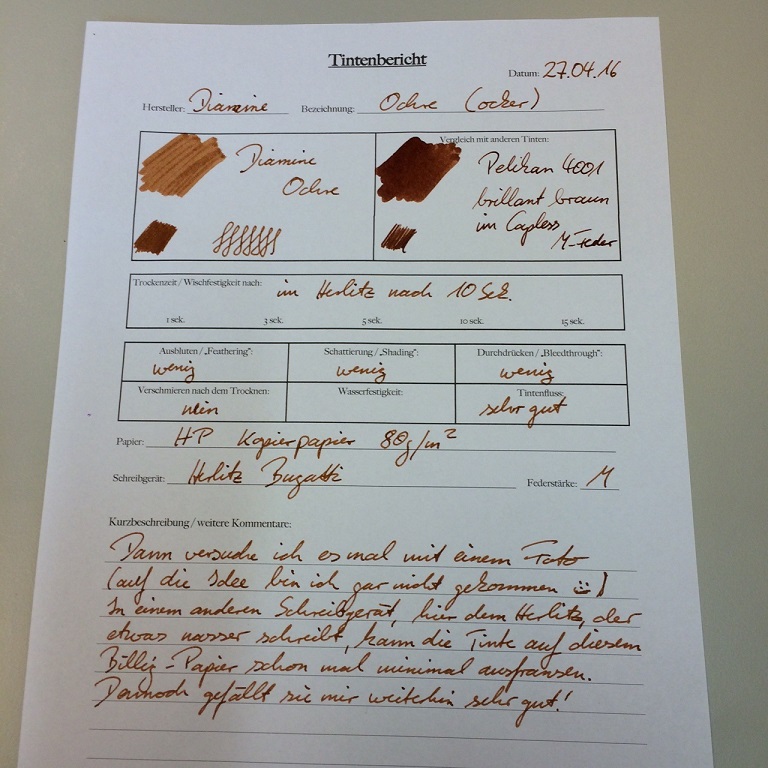 Tintenbericht
Datum: 27.04.16
Hersteller: Diamine Bezeichnung: Ochre (ocker)
Diamine
Ochre
Vergleich mit anderen Tinten:
Pelikan 4001
brillant braun
im Capless
M-Feder
Trockenzeit / Wischfestigkeit nach: im Herlitz nach 10 Sek.
1 sek. 3 sek. 5 sek. 10 sek. 15 sek.
Ausbluten / „Feathering": Schattierung / „Shading": Durchdrücken / „Bleedthrough":
wenig wenig wenig
Verschmieren nach dem Trocknen: Wasserfestigkeit: Tintenfluss:
nein sehr gut
Papier: HP Kopierpapier 80g/m²
Schreibgerät: Herlitz Bugatti Federstärke: M
Kurzbeschreibung / weitere Kommentare:
Dann versuche ich es mal mit einem Foto
(auf die Idee bin ich gar nicht gekommen :))
In einem anderen Schreibgerät, hier dem Herlitz, der
etwas nasser schreibt, kann die Tinte auf diesem
Billig-Papier schon mal minimal ausfransen.
Dennoch gefällt sie mir weiterhin sehr gut!